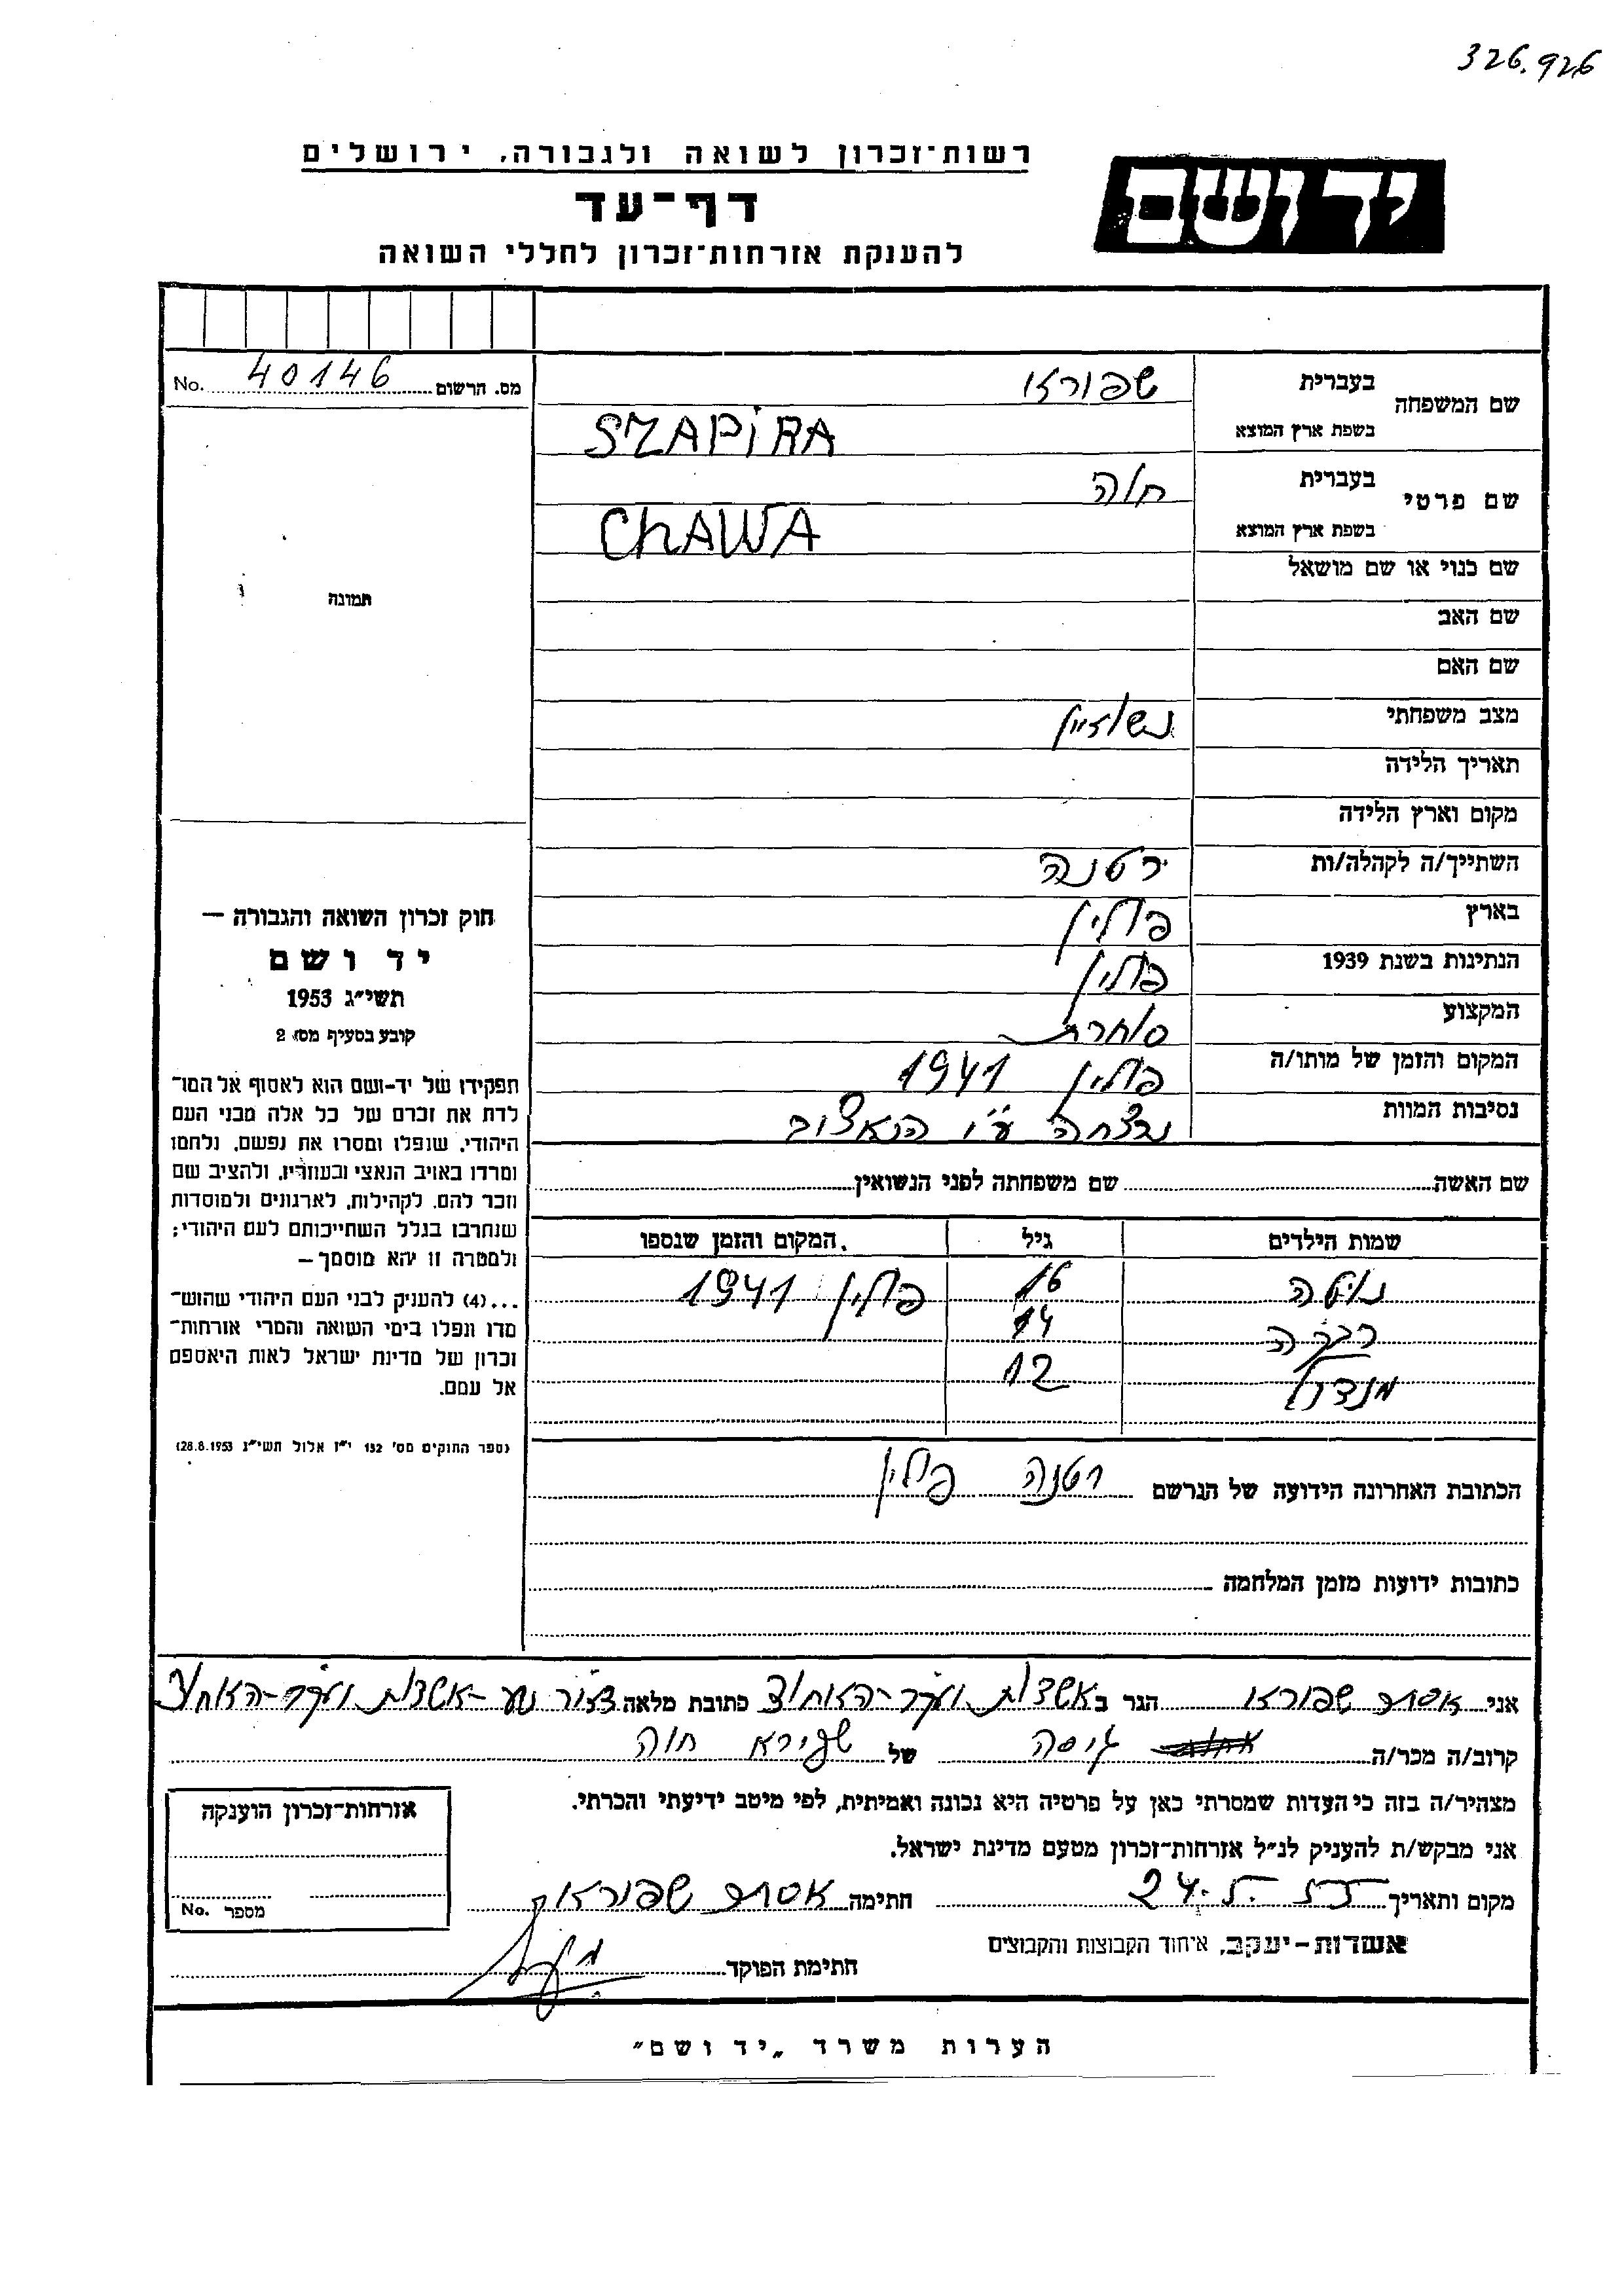 326.926
רשות־זכרון לשואה ולגבורה, ירושלים
יד ושם
דף־עד
להענקת אזרחות־זכרון לחללי השואה
מס. הרשום 40146 No.
שם המשפחה
בעברית שפירא
בשפת ארץ המוצא SZAPiRA
שם פרטי
בעברית חוה
בשפת ארץ המוצא ChAWA
שם כנוי או שם מושאל
שם האב
שם האם
מצב משפחתי נשואין
תאריך הלידה
מקום וארץ הלידה
השתייך/ה לקהלה/ות רטנה
בארץ פולין
הנתינות בשנת 1939 פולין
המקצוע סוחרת
המקום והזמן של מותו/ה פולין 1941
נסיבות המוות נרצחה ע״י הנאצים
שם האשה שם משפחתה לפני הנשואין
שמות הילדים גיל המקום והזמן שנספו
16 פולין 1941
רבקה 14
מנדל 12
הכתובת האחרונה הידועה של הנרשם רטנה פולין
כתובות ידועות מזמן המלחמה
תמונה
חוק זכרון השואה והגבורה —
יד ושם
תשי״ג 1953
קובע בסעיף מס׳ 2
תפקידו של יד-ושם הוא לאסוף אל המו־
לדת את זכרם של כל אלה מבני העם
היהודי, שנפלו ומסרו את נפשם, נלחמו
ומרדו באויב הנאצי ובעוזריו, ולהציב שם
וזכר להם, לקהילות, לארגונים ולמוסדות
שנחרבו בגלל השתייכותם לעם היהודי;
ולמטרה זו יהא מוסמך—
...(4) להעניק לבני העם היהודי שהוש־
מדו ונפלו בימי השואה והמרי אזרחות־
זכרון של מדינת ישראל לאות היאספם
אל עמם.
(ספר החוקים מס׳ 132 י״ז אלול תשי״ג 28.8.1953)
אני אסתר שפירא הגר ב אשדות יעקב-האחוד כתובת מלאה אשדות יעקב-האחוד
קרוב/ה מכר/ה גיסה של שפירא חוה
מצהיר/ה בזה כי העדות שמסרתי כאן על פרטיה היא נכונה ואמיתית, לפי מיטב ידיעתי והכרתי.
אני מבקש/ת להעניק לנ״ל אזרחות־זכרון מטעם מדינת ישראל.
מקום ותאריך חתימה אסתר שפירא
אשדות-יעקב, איחוד הקבוצות והקבוצים
חתימת הפוקד
אזרחות־זכרון הוענקה
מספר No.
הערות משרד „יד ושם״